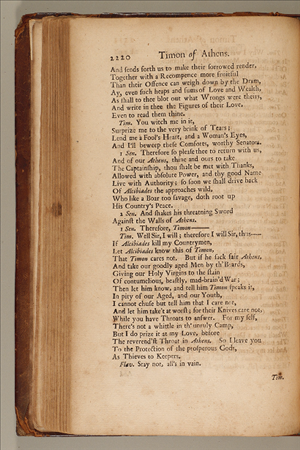 2220 Timon of Athens.
And sends forth us to make their sorrowed render,
Together with a Recompence more fruitful
Than their Offence can weigh down by the Dram,
Ay, even such heaps and sums of Love and Wealth,
As shall to thee blot out what Wrongs were theirs,
And write in thee the Figures of their Love,
Even to read them thine.
Tim. You witch me in it,
Surprize me to the very brink of Tears;
Lend me a Fool's Heart, and a Woman's Eyes,
And I'll beweep these Comforts, worthy Senators.
1 Sen. Therefore so please thee to return with us,
And of our Athens, thine and ours to take
The Captainship, thou shalt be met with Thanks,
Allowed with absolute Power, and thy good Name
Live with Authority; so soon we shall drive back
Of Alcibiades the approaches wild,
Who like a Boar too savage, doth root up
His Country's Peace.
2 Sen. And shakes his threatning Sword
Against the Walls of Athens.
1 Sen. Therefore, Timon———
Tim. Well Sir, I will; therefore I will Sir, thus——
If Alcibiades kill my Countrymen,
Let Alcibiades know this of Timon,
That Timon cares not. But if he sack fair Athens,
And take our goodly aged Men by th' Beards,
Giving our Holy Virgins to the stain
Of contumelious, beastly, mad-brain'd War;
Then let him know, and tell him Timon speaks it,
In pity of our Aged, and our Youth,
I cannot chuse but tell him that I care not,
And let him take't at worst; for their Knives care not,
While you have Throats to answer. For my self,
There's not a whittle in th' unruly Camp,
But I do prize it at my Love, before
The reverend'st Throat in Athens. So I leave you
To the Protection of the prosperous Gods,
As Thieves to Keepers.
Flav. Stay not, all's in vain.
Tim.